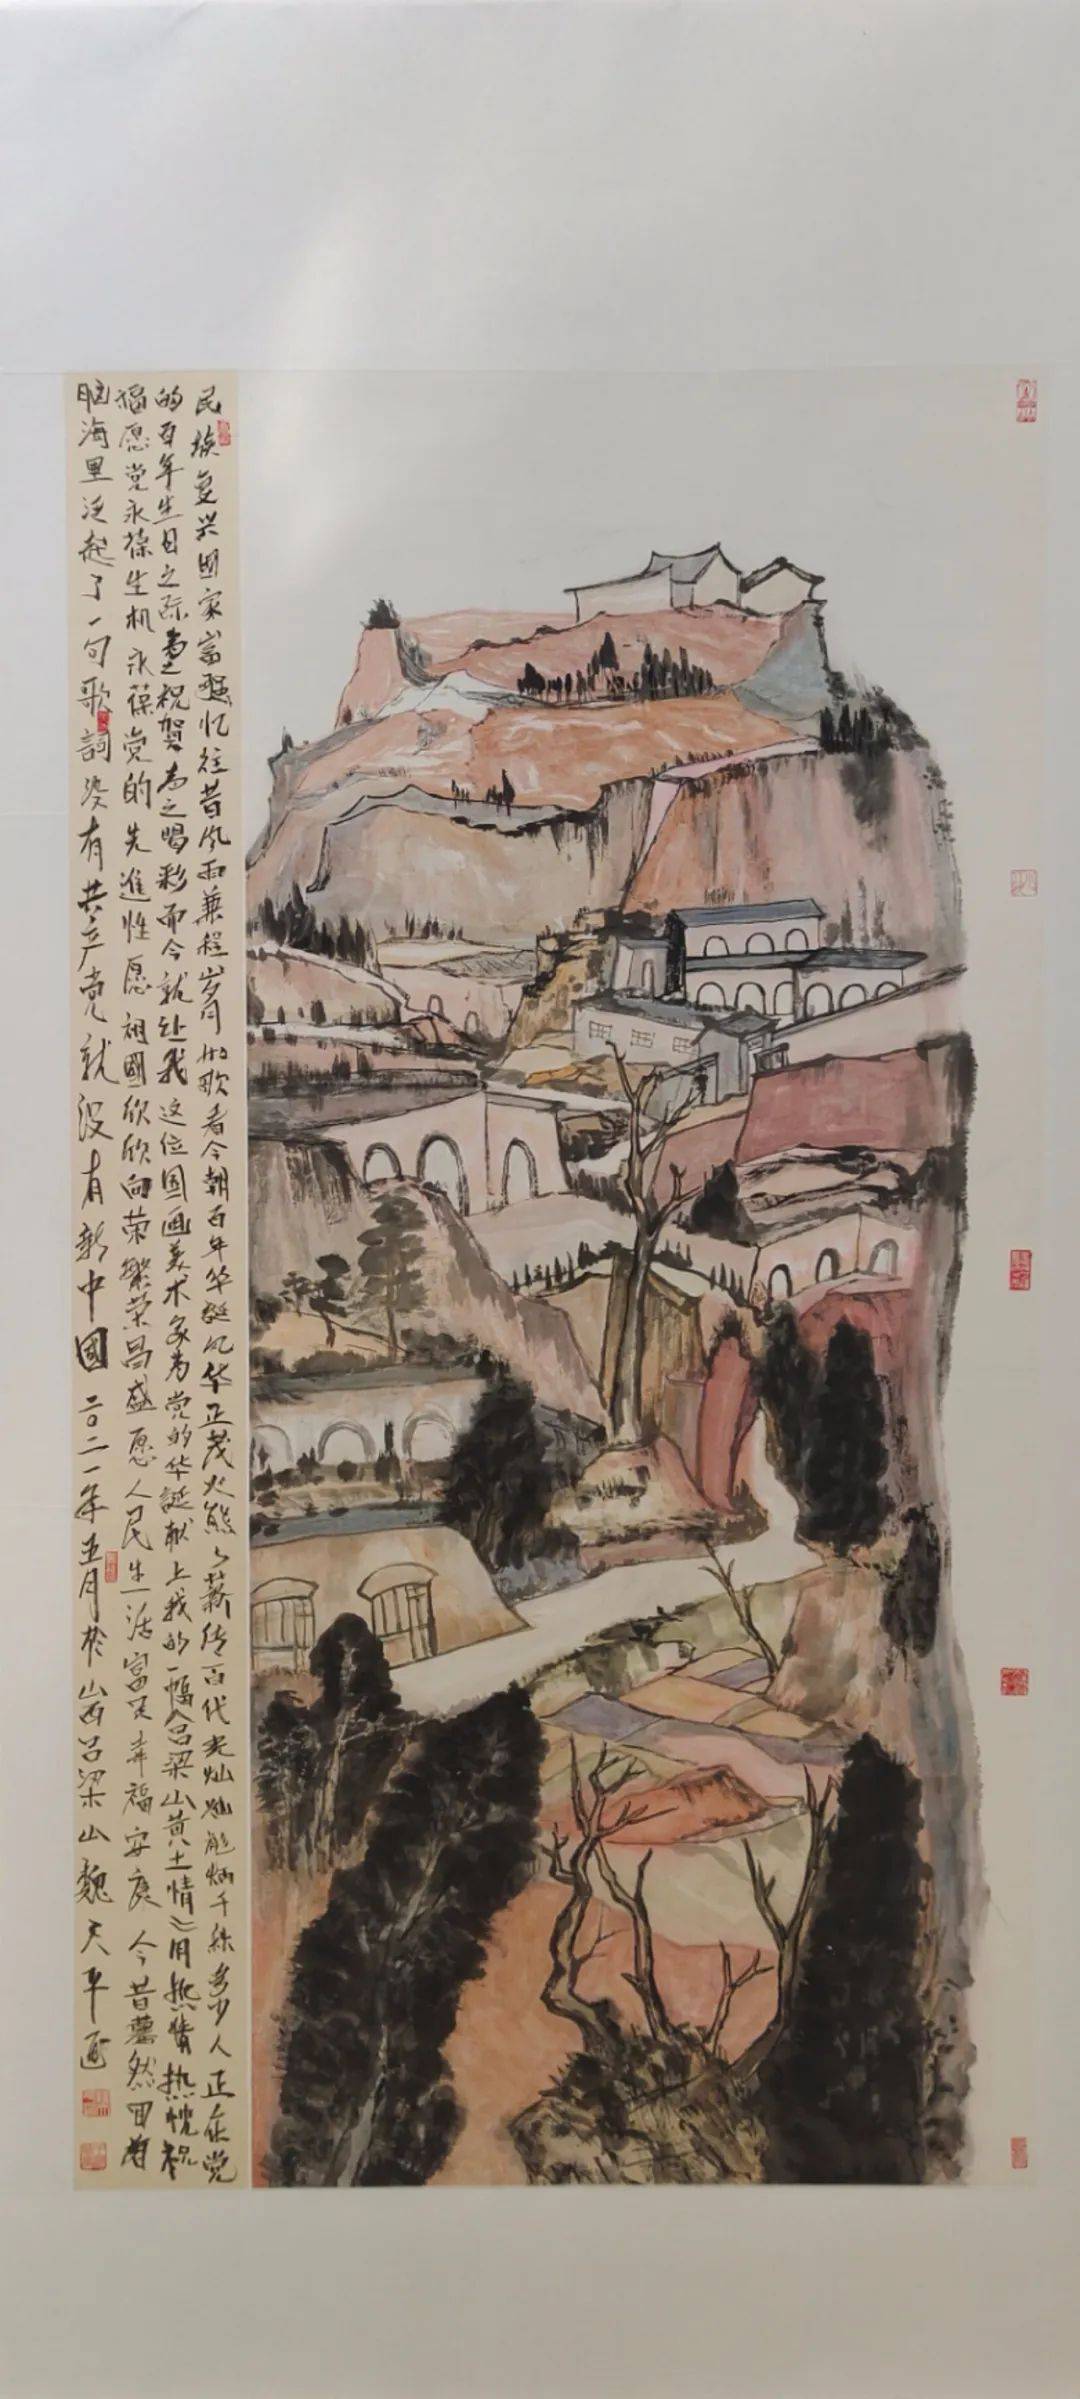 民族复兴国家富强忆往昔风雨兼程岁月如歌看今朝百年华诞风华正茂火熊々薪传百代光灿灿彪炳千秋多少人正在党
的百年生日之际为之祝贺为之喝彩而今就让我这位国画美术家为党的华誕献上我的一幅《吕梁山黄土情》用热情热忱祝
福愿党永葆生机永葆党的先進性愿祖國欣欣向荣繁荣昌盛愿人民生活富足幸福安康今昔蓦然回首
脑海里泛起了一句歌詞没有共产党就没有新中國二〇二一年五月於山西吕梁山魏天平画